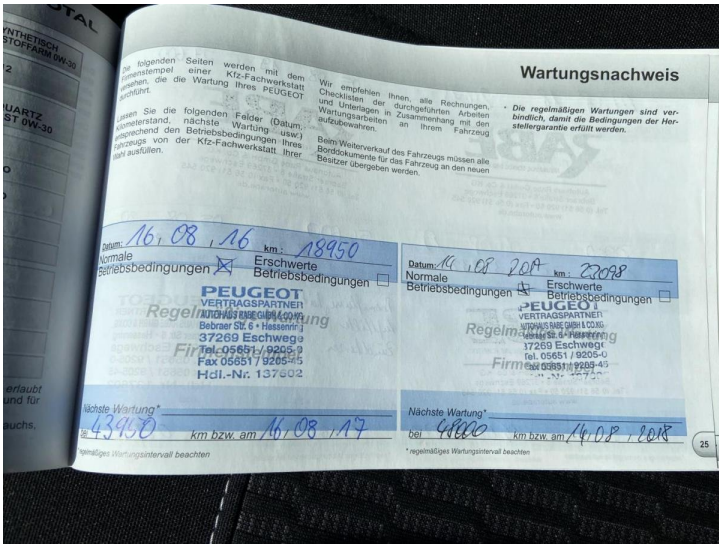 TOTAL
YNTHETISCH
STOFFARM 0W-30
12
UARTZ
ST 0W-30
O
O
erlaubt
und für
auchs,
Wartungsnachweis
Die folgenden Seiten werden mit dem
Firmenstempel einer Kfz-Fachwerkstatt
versehen, die die Wartung Ihres PEUGEOT
durchführt.
Lassen Sie die folgenden Felder (Datum,
Kilometerstand, nächste Wartung usw.)
entsprechend den Betriebsbedingungen Ihres
Fahrzeugs von der Kfz-Fachwerkstatt Ihrer
Wahl ausfüllen.
Wir empfehlen Ihnen, alle Rechnungen,
Checklisten der durchgeführten Arbeiten
und Unterlagen in Zusammenhang mit den
Wartungsarbeiten an Ihrem Fahrzeug
aufzubewahren.
Beim Weiterverkauf des Fahrzeugs müssen alle
Borddokumente für das Fahrzeug an den neuen
Besitzer übergeben werden.
* Die regelmäßigen Wartungen sind ver-
bindlich, damit die Bedingungen der Her-
stellergarantie erfüllt werden.
Datum: 16, 08, 16 km: 18950
Normale
Betriebsbedingungen
Erschwerte
Betriebsbedingungen
PEUGEOT
VERTRAGSPARTNER
AUTOHAUS RABE GMBH & CO.KG
Bebraer Str. 6 • Hessenring
37269 Eschwege
Tel. 05651 / 9205-0
Fax 05651 / 9205-45
Hdl.-Nr. 137602
Nächste Wartung*
bei 43950 km bzw. am 16, 08, 17
* regelmäßiges Wartungsintervall beachten
Datum: 14, 08 km: 23098
Normale
Betriebsbedingungen
Erschwerte
Betriebsbedingungen
PEUGEOT
VERTRAGSPARTNER
AUTOHAUS RABE GMBH & CO.KG
Bebraer Str. 6 • Hessenring
37269 Eschwege
Tel. 05651 / 9205-0
Fax 05651 / 9205-45
Nächste Wartung*
bei 48000 km bzw. am 14, 08, 2018
* regelmäßiges Wartungsintervall beachten
25